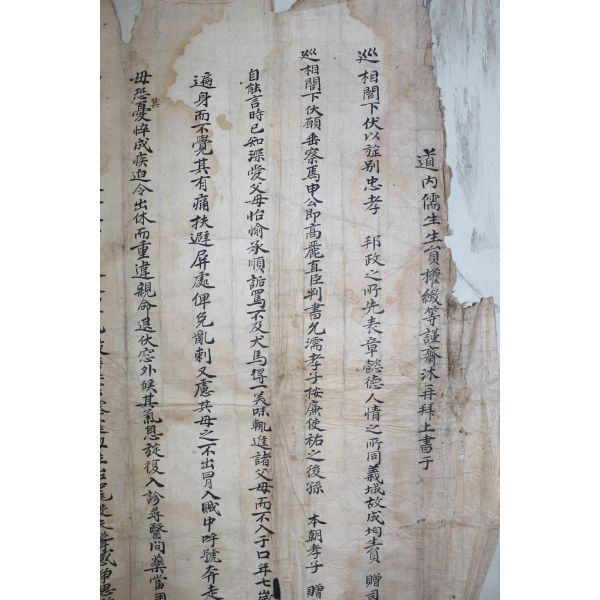 道內儒生生員權緻等謹齋沐再拜上書于
巡相閤下伏以旌別忠孝 邦政之所先表章懿德人情之所同義城故成均生員 贈司
巡相閤下伏願垂察焉申公卽高麗直臣判書允濡孝子按廉使祐之後孫 本朝孝子 贈
自能言時已知深愛父母怡愉承順詬罵不及犬馬得一美味輒進諸父母而不入于口年七歲
遍身而不覺其有痛扶避屛處俾免亂刺又慮其母之不出冒入賊中呼號奔走
母恐其憂悴成疾迫令出休而重違親命退伏窓外候其氣息旋復入診尋醫問藥當